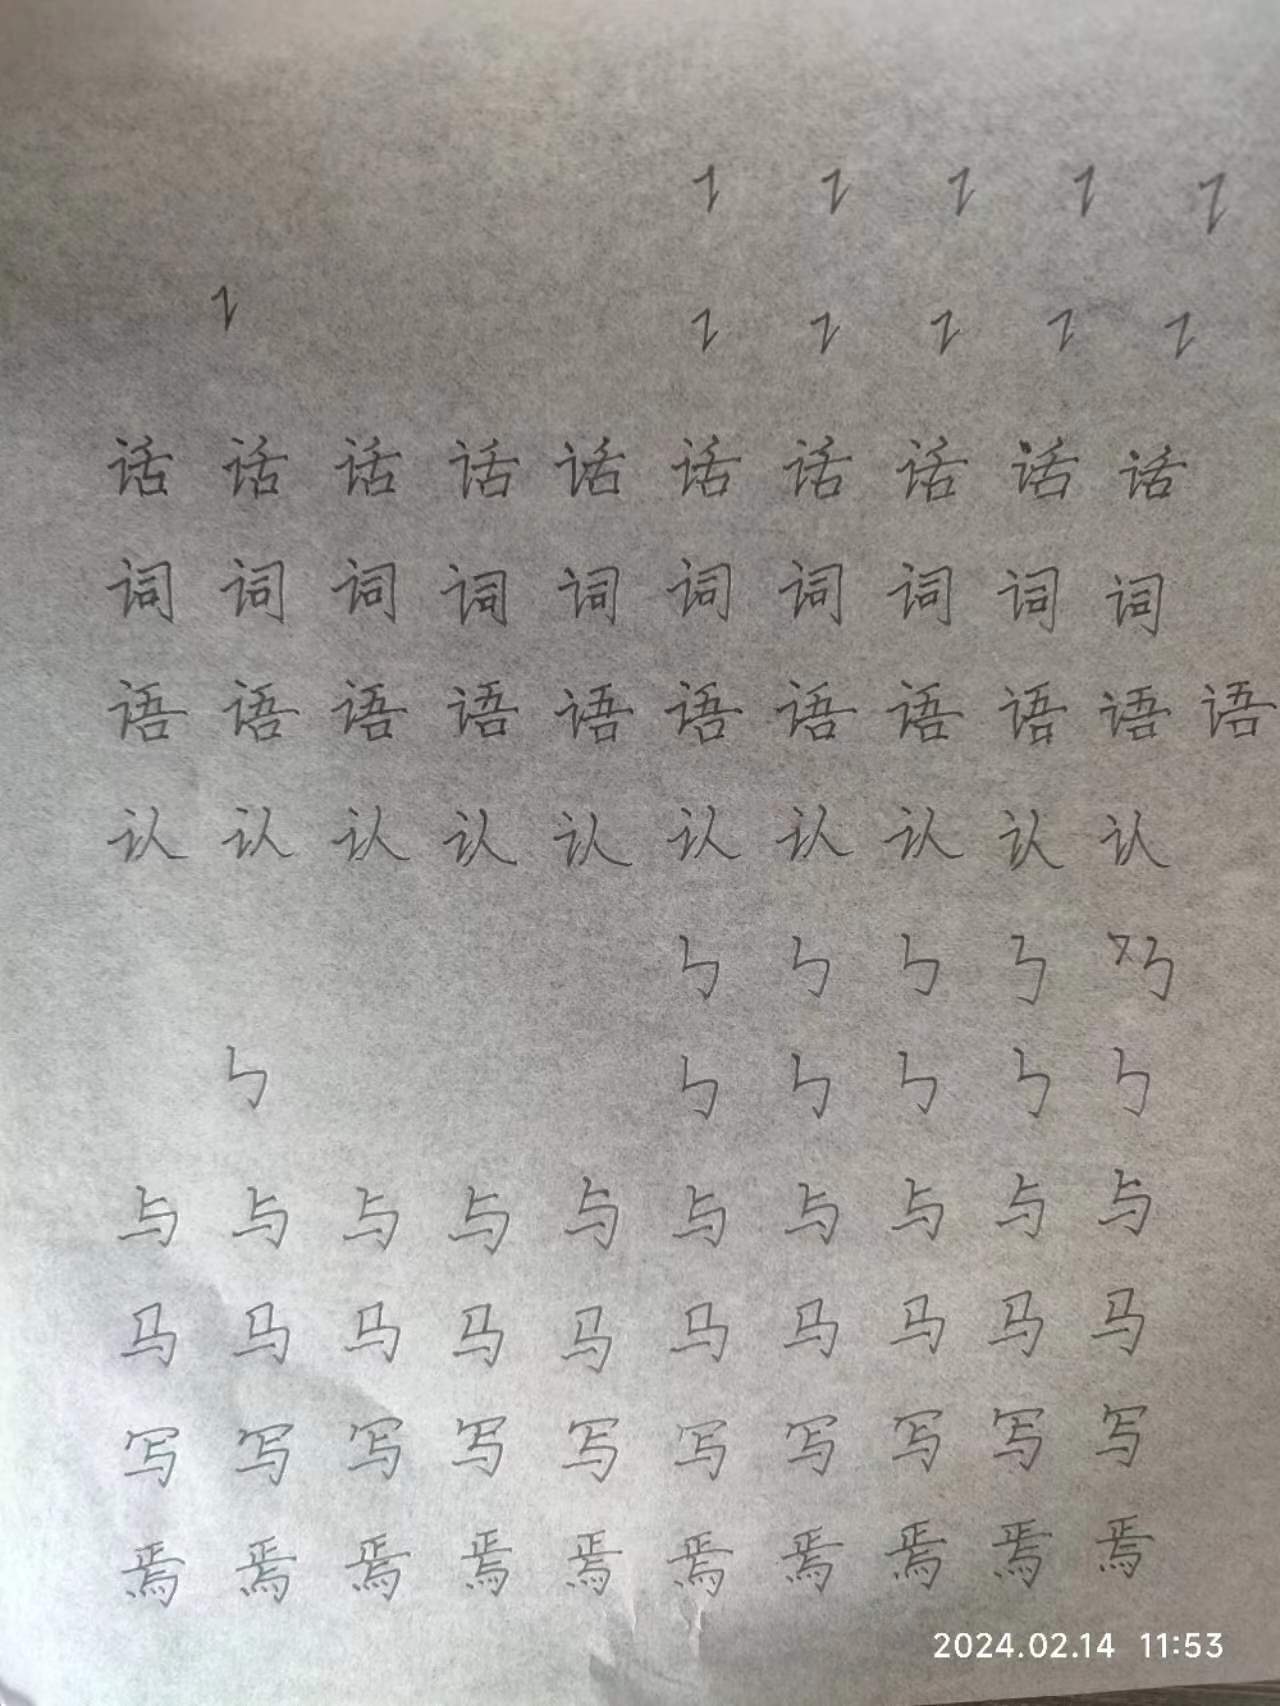 话 话 话 话 话 话 话 话 话 话
词 词 词 词 词 词 词 词 词 词
语 语 语 语 语 语 语 语 语 语 语
认 认 认 认 认 认 认 认 认 认
与 与 与 与 与 与 与 与 与 与
马 马 马 马 马 马 马 马 马 马
写 写 写 写 写 写 写 写 写 写
焉 焉 焉 焉 焉 焉 焉 焉 焉 焉
2024.02.14 11:53